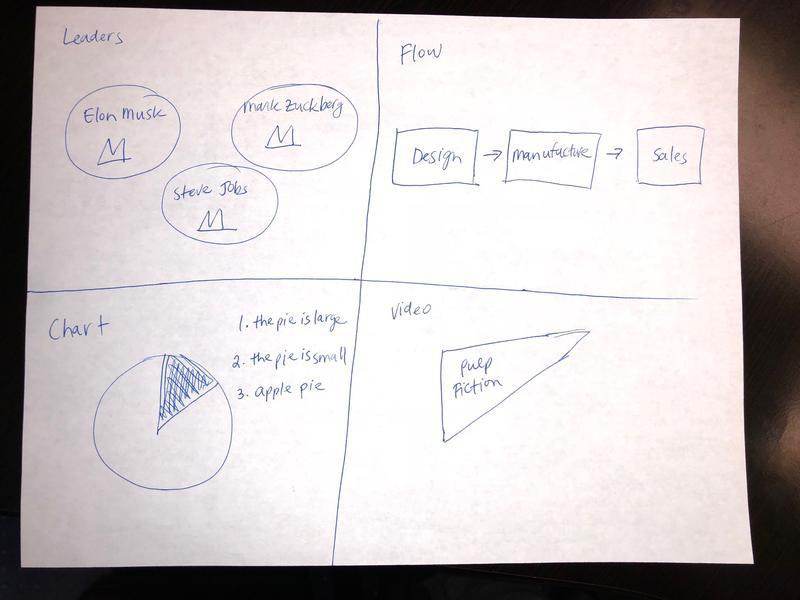 Leaders
Elon Musk
Mark Zuckberg
Steve Jobs
Flow
Design → manufacture → Sales
Chart
1. the pie is large
2. the pie is small
3. apple pie
Video
Pulp
Fiction